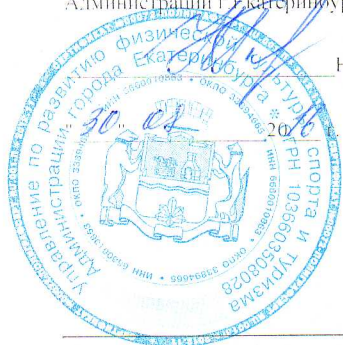 Администрации г. Екатеринбур
Н
30 " 20 г.
Управление по развитию физической культуры спорта и туризма
Администрации города Екатеринбурга * ОГРН 1036603508028
ИНН 6660010863 * ОКПО 33994665 * ИНН 6660010863 * ОКПО 33994665